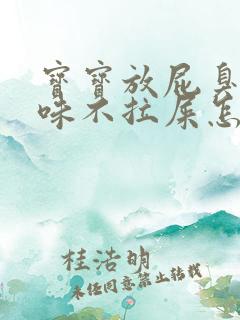 宝宝放屁臭
味不拉屎怎
桂浩明
未经同意禁止转载